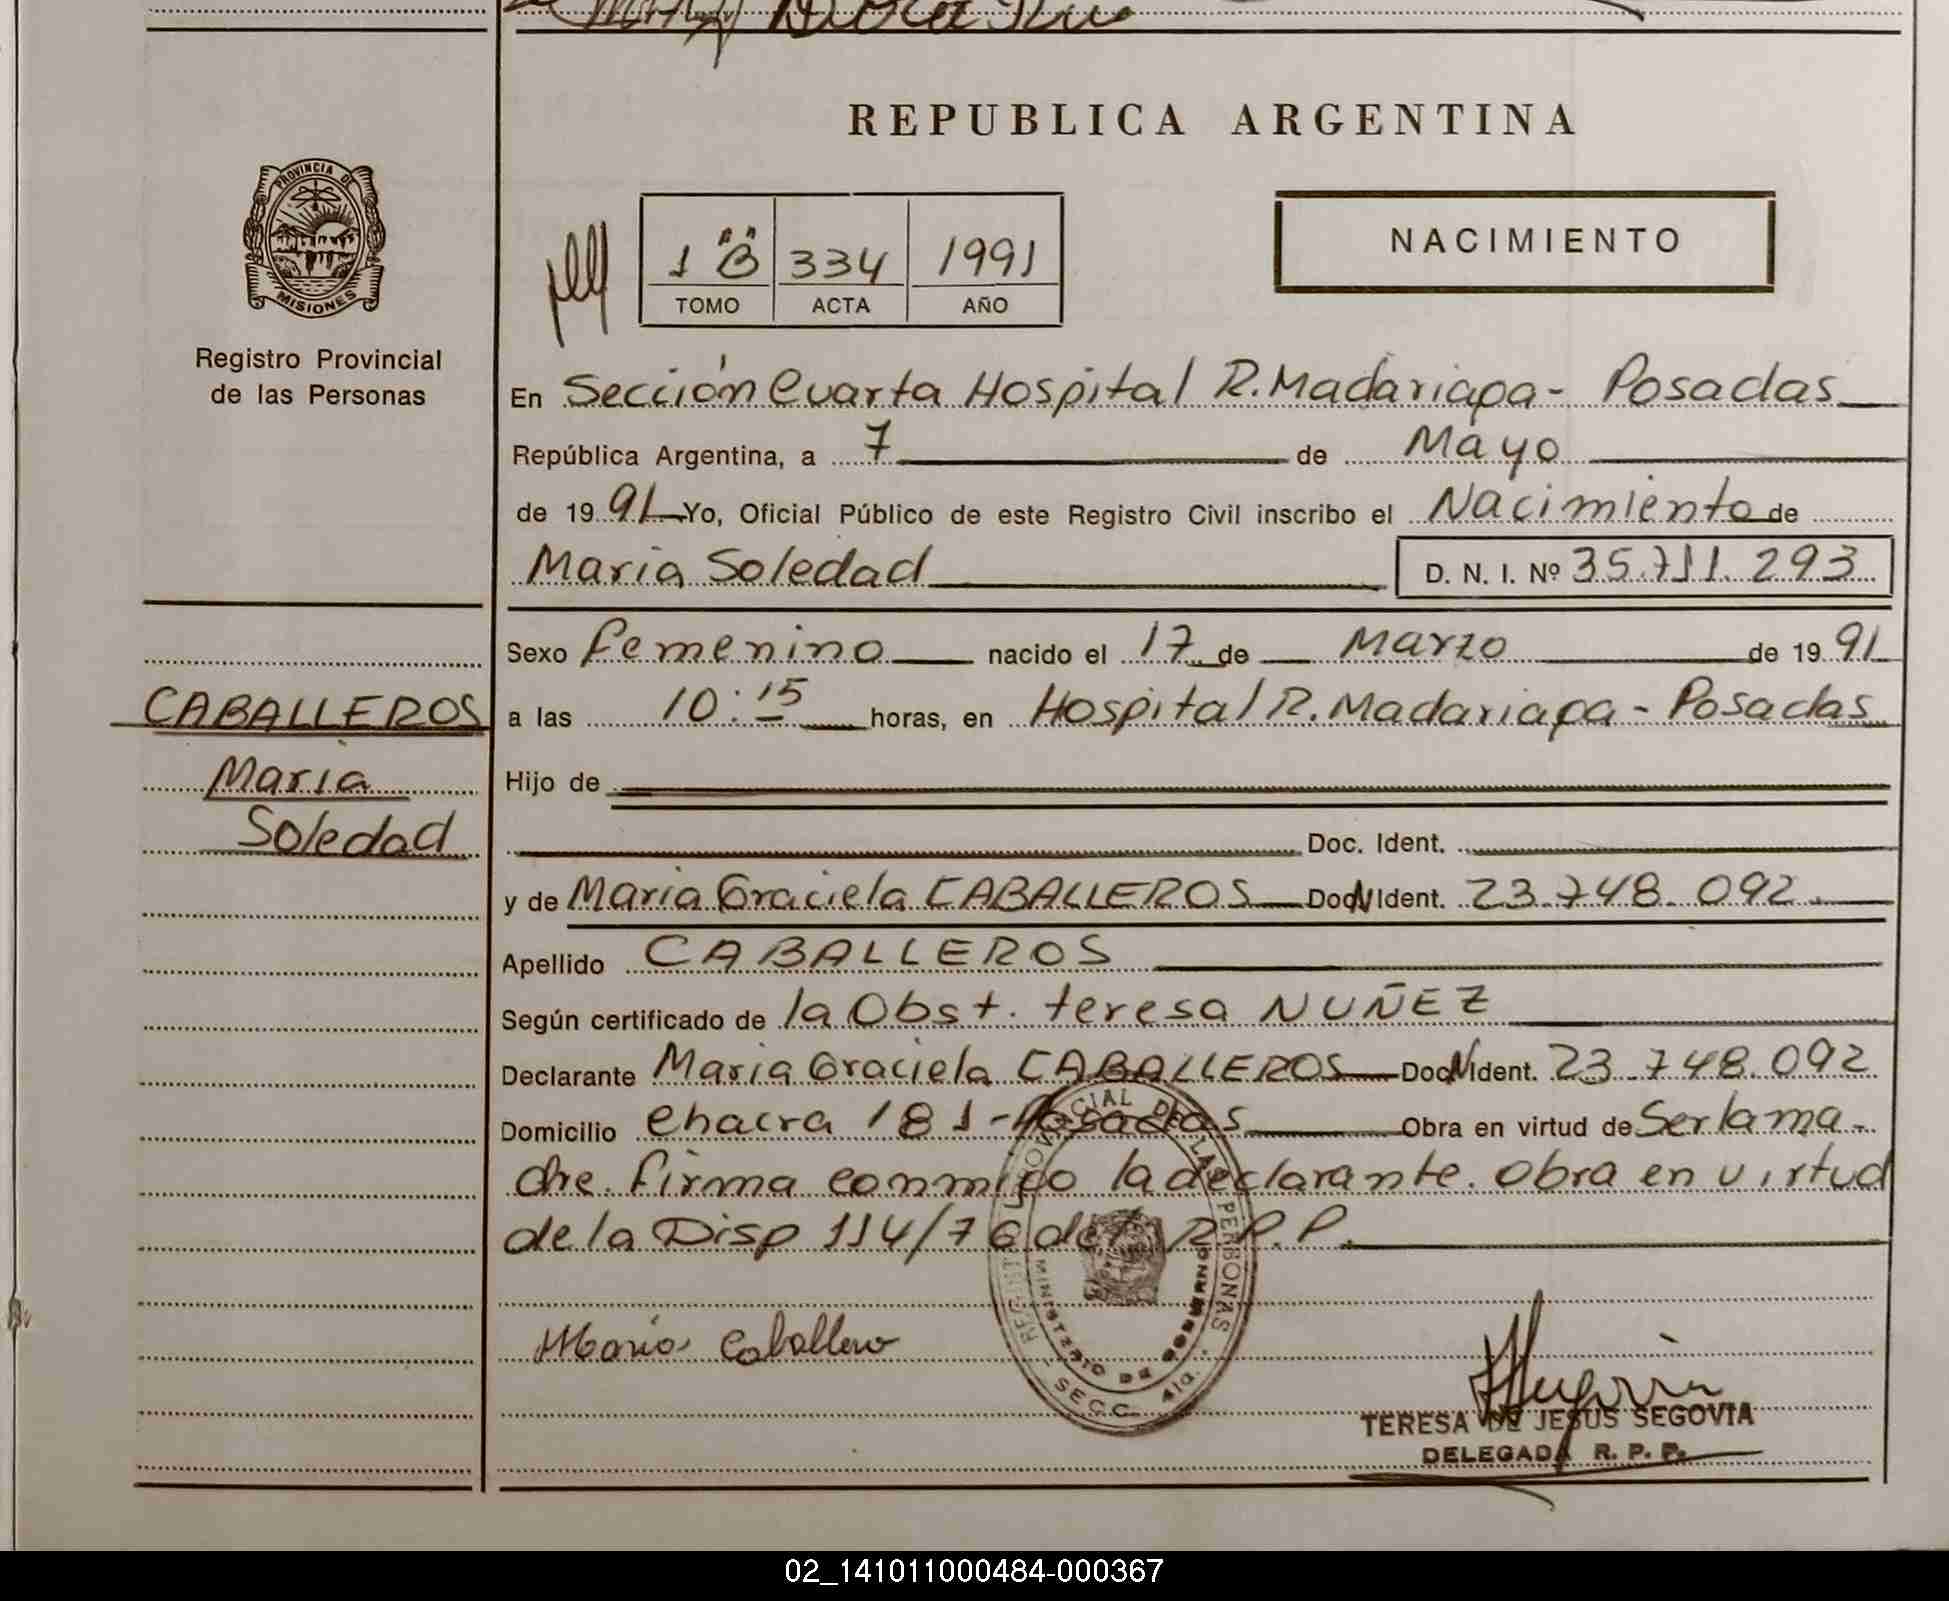 REPUBLICA ARGENTINA
PROVINCIA DE
MISIONES
Registro Provincial
de las Personas
1 "B" 334 1991
TOMO ACTA AÑO
NACIMIENTO
En Sección Cuarta Hospital R. Madariaga - Posadas
República Argentina, a 7 de Mayo
de 1991 Yo, Oficial Público de este Registro Civil inscribo el Nacimiento de
Maria Soledad D. N. I. Nº 35.711.293
Sexo femenino nacido el 17 de Marzo de 1991
CABALLEROS
Maria
Soledad
a las 10:15 horas, en Hospital R. Madariaga - Posadas
Hijo de
Doc. Ident.
y de Maria Graciela CABALLEROS Doc N Ident. 23.748.092
Apellido CABALLEROS
Según certificado de la Obst. teresa NUÑEZ
Declarante Maria Graciela CABALLEROS Doc N Ident. 23.748.092
Domicilio Chacra 181 - Posadas Obra en virtud de Ser la ma-
dre. firma conmigo la declarante. Obra en virtud
de la Disp 114/76 del R.P.P.
REGISTRO PROVINCIAL DE LAS PERSONAS
MINISTERIO DE GOBIERNO
SECC. 4ta.
Maria Caballero
TERESA DE JESUS SEGOVIA
DELEGADA R. P. P.
02_141011000484-000367